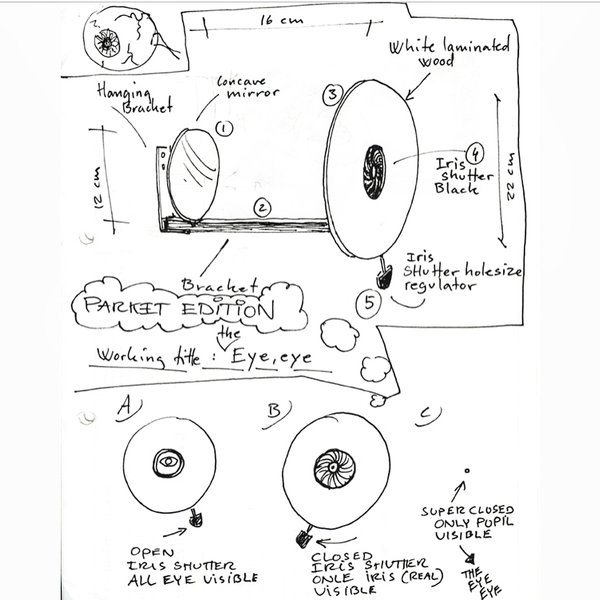 16 cm
White laminated
wood
Hanging
Bracket
Concave
mirror
1
3
4
Iris
shutter
Black
12 cm
2
22 cm
Iris
SHutter holesize
regulator
5
Bracket
PARKET EDITION
the
Working title : Eye, eye
A)
B)
C)
OPEN
IRIS SHUTTER
ALL EYE VISIBLE
CLOSED
IRIS SHUTTER
ONLE IRIS (REAL)
VISIBLE
SUPER CLOSED
ONLY PUPIL
VISIBLE
THE
EYE
EYE